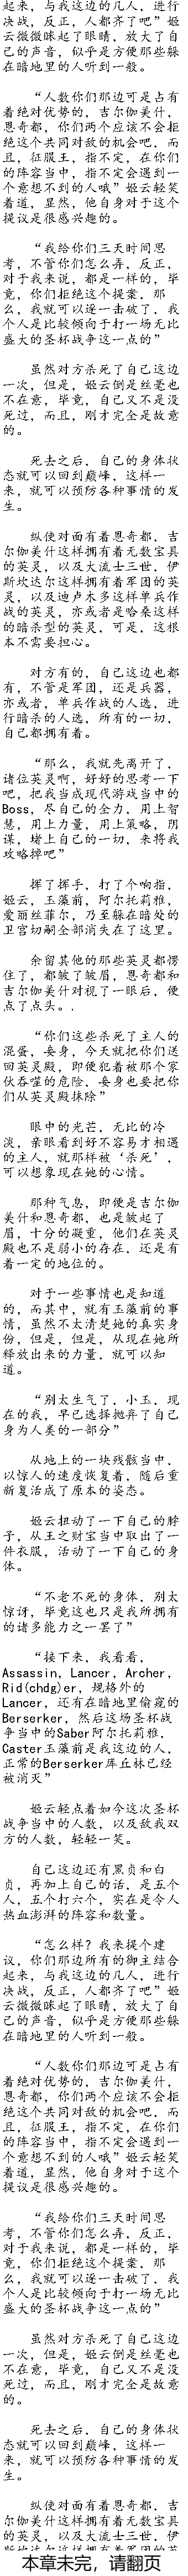 起来，与我这边的几人，进行
决战，反正，人都齐了吧”姬
云微微眯起了眼睛，放大了自
己的声音，似乎是方便那些躲
在暗地里的人听到一般。
“人数你们那边可是占有
着绝对优势的，吉尔伽美什，
恩奇都，你们两个应该不会拒
绝这个共同对敌的机会吧，而
且，征服王，指不定，在你们
的阵容当中，指不定会遇到一
个意想不到的人哦”姬云轻笑
着道，显然，他自身对于这个
提议是很感兴趣的。
“我给你们三天时间思
考，不管你们怎么弄，反正，
对于我来说，都是一样的，毕
竟，你们拒绝这个提案，那
么，我就可以逐一击破了，我
个人是比较倾向于打一场无比
盛大的圣杯战争这一点的”
虽然对方杀死了自己这边
一次，但是，姬云倒是丝毫也
不在意，毕竟，自己又不是没
死过，而且，刚才完全是故意
的。
死去之后，自己的身体状
态就可以回到巅峰，这样一
来，就可以预防各种事情的发
生。
纵使对面有着恩奇都，吉
尔伽美什这样拥有着无数宝具
的英灵，以及大流士三世，伊
斯坎达尔这样拥有着军团的英
灵，以及迪卢木多这样单兵作
战的英灵，亦或者是哈桑这样
的暗杀型的英灵，可是，这根
本不需要担心。
对方有的，自己这边也都
有，不管是军团，还是兵器，
亦或者，单兵作战的人选，进
行暗杀的人选，所有的一切，
自己都拥有着。
“那么，我就先离开了，
诸位英灵啊，好好的思考一下
吧，把我当成现代游戏当中的
Boss，尽自己的全力，用上智
慧，用上力量，用上策略，阴
谋，堵上自己的一切，来将我
攻略掉吧”
挥了挥手，打了个响指，
姬云，玉藻前，阿尔托莉雅，
爱丽丝菲尔，乃至躲在暗处的
卫宫切嗣全部消失在了这里。
余留其他的那些英灵都愣
住了，都皱了皱眉，恩奇都和
吉尔伽美什对视了一眼后，便
点了点头。.
“你们这些杀死了主人的
混蛋，妾身，今天就把你们送
回英灵殿，即便犯着被那个家
伙吞噬的危险，妾身也要把你
们从英灵殿抹除”
眼中的光芒，无比的冷
淡，亲眼看到好不容易才相遇
的主人，就那样被‘杀死’，
可以想象现在她的心情。
那种气息，即便是吉尔伽
美什和恩奇都，也是皱起了
眉，十分的凝重，他们在英灵
殿也不是弱小的存在，还是有
着一定的地位的。
对于一些事情也是知道
的，而其中，就有玉藻前的事
情，虽然不太清楚她的真实身
份，但是，但是，从现在她所
释放出来的力量，就可以知
道。
“别太生气了，小玉，现
在的我，早已选择抛弃了自己
身为人类的一部分”
从地上的一块残骸当中，
以惊人的速度恢复着，随后重
新复活成了原本的姿态。
姬云扭动了一下自己的脖
子，从王之财宝当中取出了一
件衣服，活动了一下自己的身
体。
“不老不死的身体，别太
惊讶，毕竟这也只是我所拥有
的诸多能力之一罢了”
“接下来，我看看，
Assassin，Lancer，Archer，
Rid(chdg)er，规格外的
Lancer，还有在暗地里偷窥的
Berserker，然后这场圣杯战
争当中的Saber阿尔托莉雅，
Caster玉藻前是我这边的人，
正常的Berserker库丘林已经
被消灭”
姬云轻点着如今这次圣杯
战争当中的人数，以及敌我双
方的人数，轻轻一笑。
自己这边还有黑贞和白
贞，再加上自己的话，是五个
人，五个打六个，实在是令人
热血澎湃的阵容和数量。
“怎么样？我来提个建
议，你们那边所有的御主结合
起来，与我这边的几人，进行
决战，反正，人都齐了吧”姬
云微微眯起了眼睛，放大了自
己的声音，似乎是方便那些躲
在暗地里的人听到一般。
“人数你们那边可是占有
着绝对优势的，吉尔伽美什，
恩奇都，你们两个应该不会拒
绝这个共同对敌的机会吧，而
且，征服王，指不定，在你们
的阵容当中，指不定会遇到一
个意想不到的人哦”姬云轻笑
着道，显然，他自身对于这个
提议是很感兴趣的。
“我给你们三天时间思
考，不管你们怎么弄，反正，
对于我来说，都是一样的，毕
竟，你们拒绝这个提案，那
么，我就可以逐一击破了，我
个人是比较倾向于打一场无比
盛大的圣杯战争这一点的”
虽然对方杀死了自己这边
一次，但是，姬云倒是丝毫也
不在意，毕竟，自己又不是没
死过，而且，刚才完全是故意
的。
死去之后，自己的身体状
态就可以回到巅峰，这样一
来，就可以预防各种事情的发
生。
纵使对面有着恩奇都，吉
尔伽美什这样拥有着无数宝具
的英灵，以及大流士三世，伊
本章未完，请翻页